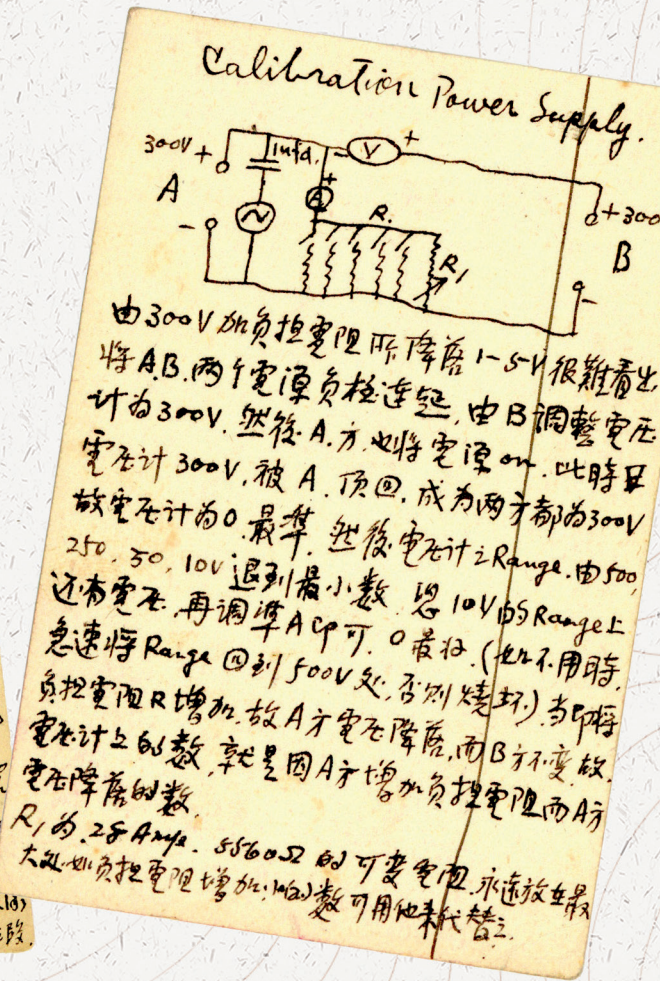 Calibration Power Supply.
300V +
1mfd.
- V +
+
A
A
R.
+ 300
B
R1
-
-
由300V加负担電阻所降落1-5V很難看出
将A.B.两个電源负極連起,由B調整電压
计為300V.然後A.方也将電源on.此時
電压计300V,被A.頂回,成為两方都為300V
故電压计為0.最準.然後電压计之Range.由500,
250,50,10V退到最小数. 10V的Range上
还有電压,再調準A即可.0最好.(如不用時,
急速将Range回到500V处,否則燒坏)当即将
负担電阻R增加,故A方電压降落,而B方不变.故
電压计上的数,就是因A方增加负担電阻而A方
電压降落的数.
R1為.28Amp. 5560Ω的可变電阻.永遠放在最
大处.如负担電阻增加 数可用他来代替之.